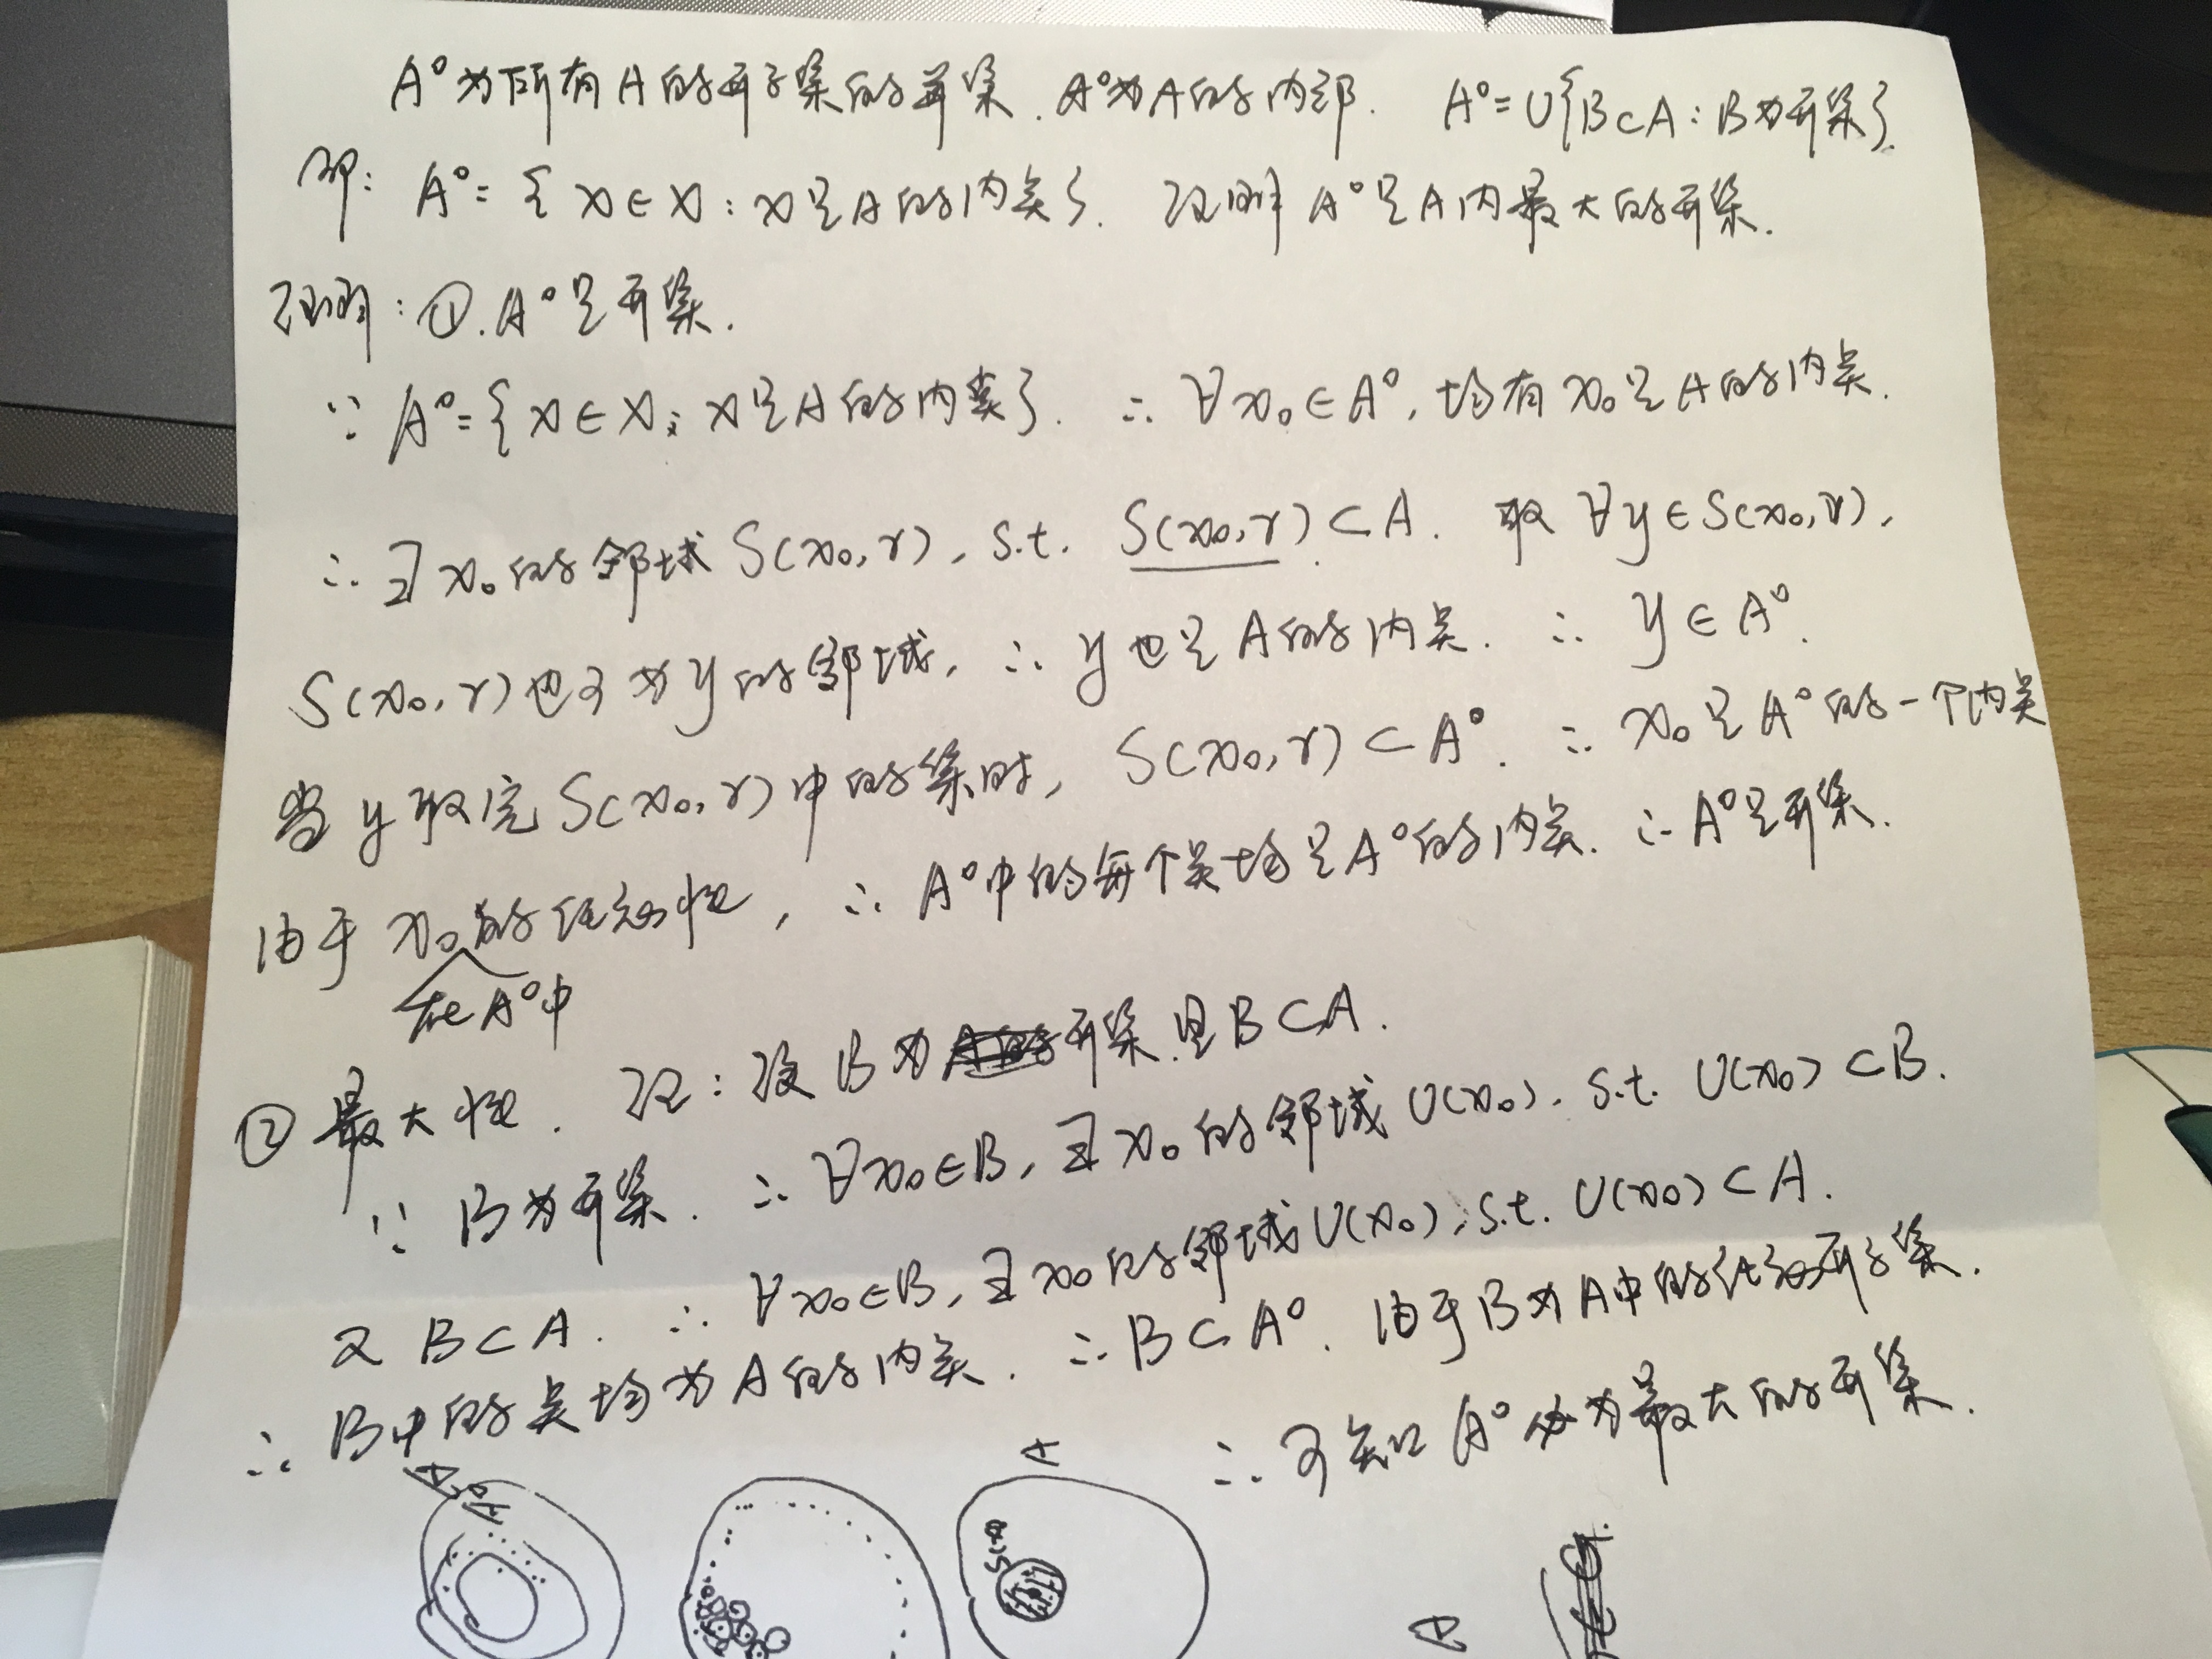 A°为所有A的开子集的并集.A°为A的内部. A°=∪{B⊂A:B为开集}.
即: A°={x∈X:x是A的内点}. 证明A°是A内最大的开集.
证明:①.A°是开集.
∵A°={x∈X;x是A的内点}. ∴∀x₀∈A°,均有x₀是A的内点.
∴∃x₀的邻域S(x₀,r),s.t. S(x₀,r)⊂A. 取∀y∈S(x₀,r),
S(x₀,r)也可为y的邻域,∴y也是A的内点. ∴y∈A°.
当y取完S(x₀,r)中的集时, S(x₀,r)⊂A°. ∴x₀是A°的一个内点
由于x₀的任意性,∴A°中的每个点均是A°的内点.∴A°是开集.
在A°中
②最大性. 证:设B为开集.且B⊂A.
∵B为开集. ∴∀x₀∈B,∃x₀的邻域U(x₀).s.t. U(x₀)⊂B.
又B⊂A. ∴∀x₀∈B,∃x₀的邻域U(x₀).s.t. U(x₀)⊂A.
∴B中的点均为A的内点. ∴B⊂A°. 由于B为A中的任意开子集.
∴可知A°必为最大的开集.
A
A°
A
S(x,r)
A